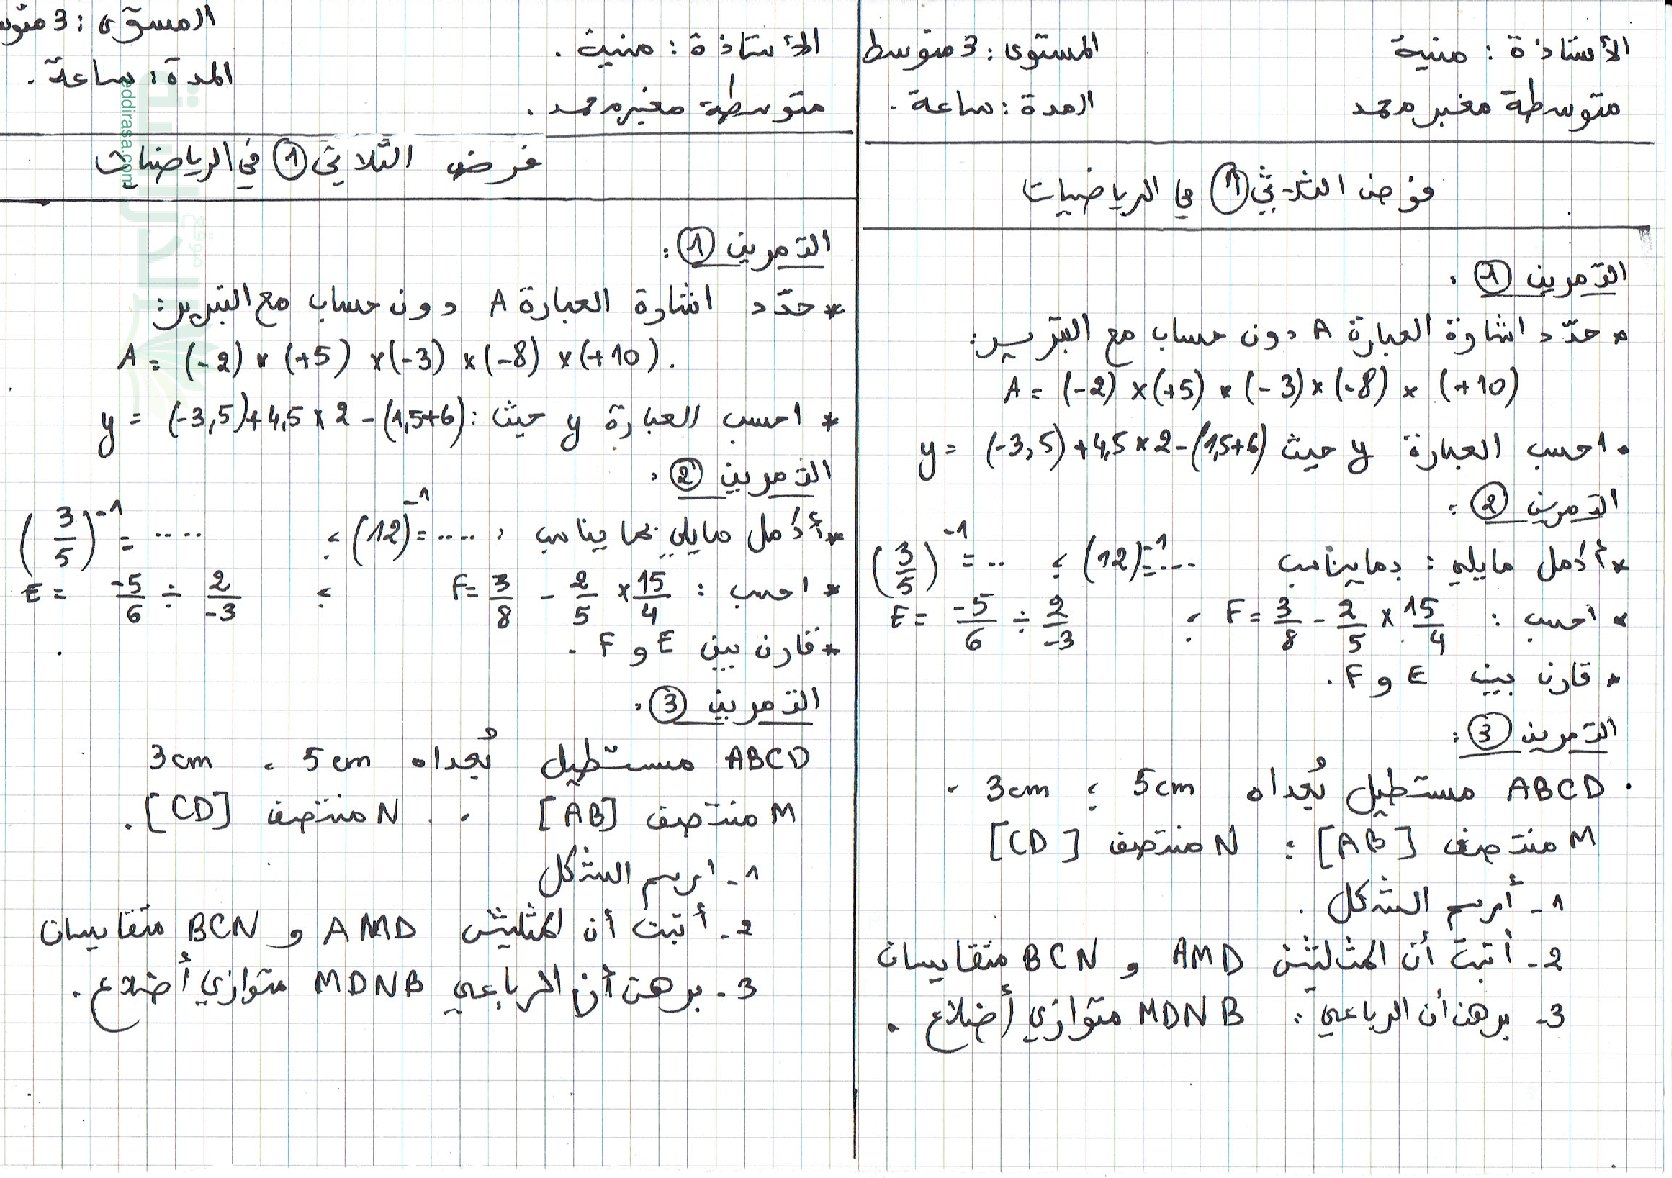 الأستاذة : منية المستوى : 3 متوسط
متوسطة مغبر محمد المدة : ساعة .
فرض الثلاثي 1 في الرياضيات
التمرين 1 :
* حدّد اشارة العبارة A دون حساب مع التبرير :
A = (-2) × (+5) × (-3) × (-8) × (+10)
* احسب العبارة y حيث y = (-3,5) + 4,5 × 2 - (1,5+6)
التمرين 2 :
* أكمل مايلي : بمايناسب (12)⁻¹ = .... ; (3/5)⁻¹ = ..
* احسب : F = 3/8 - 2/5 × 15/4 ; E = -5/6 ÷ 2/-3
* قارن بين E و F .
التمرين 3 :
ABCD مستطيل بُعداه 5cm ; 3cm .
M منتصف [AB] ; N منتصف [CD]
1- أرسم الشكل .
2- أتبت أن المثاليثن AMD و BCN متقايسان
3- برهن أن الرباعي : MDNB متوازي أضلاع .
الأستاذة : منية . المستوى : 3 متوس
متوسطة مغبر محمد . المدة : ساعة .
فرض الثلاثي 1 في الرياضيات
التمرين 1 :
* حدّد اشارة العبارة A دون حساب مع التبرير :
A = (-2) × (+5) × (-3) × (-8) × (+10) .
* احسب العبارة y حيث : y = (-3,5) + 4,5 × 2 - (1,5+6)
التمرين 2 .
* أكمل مايلي بما يناسب : (12)⁻¹ = .... ; (3/5)⁻¹ = ....
* احسب : F = 3/8 - 2/5 × 15/4 ; E = -5/6 ÷ 2/-3
* قارن بين E و F .
التمرين 3 .
ABCD مستطيل بُعداه 5cm ، 3cm
M منتصف [AB] . N منتصف [CD] .
1- ارسم الشكل
2- أتبت أن المثليثن AMD و BCN متقايسان
3- برهن أن الرباعي MDNB متوازي أضلاع .
eddirasa.com
موقع الدراسة